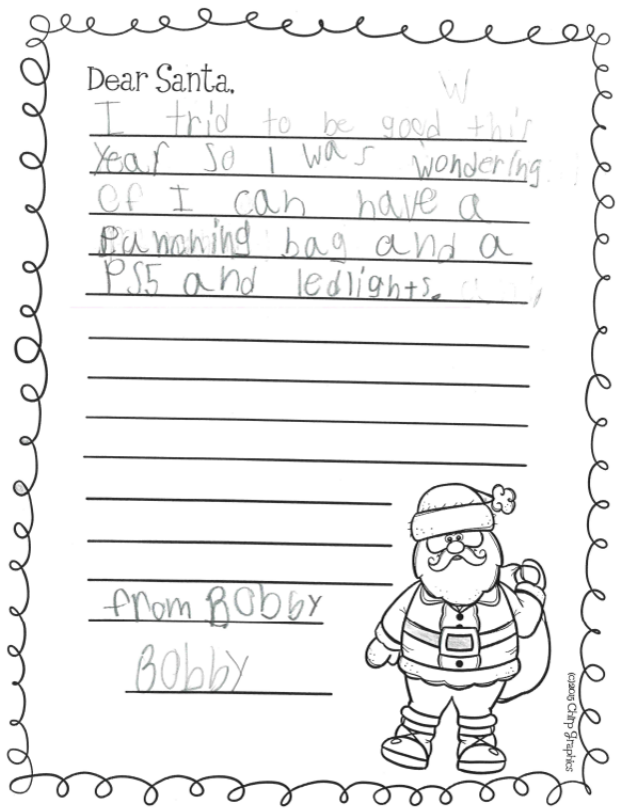 Dear Santa,
W
I trid to be good this
year so I was wondering
ef I can have a
punching bag and a
PS5 and ledlights.
from Bobby
Bobby
(c)2015 Chirp Graphics